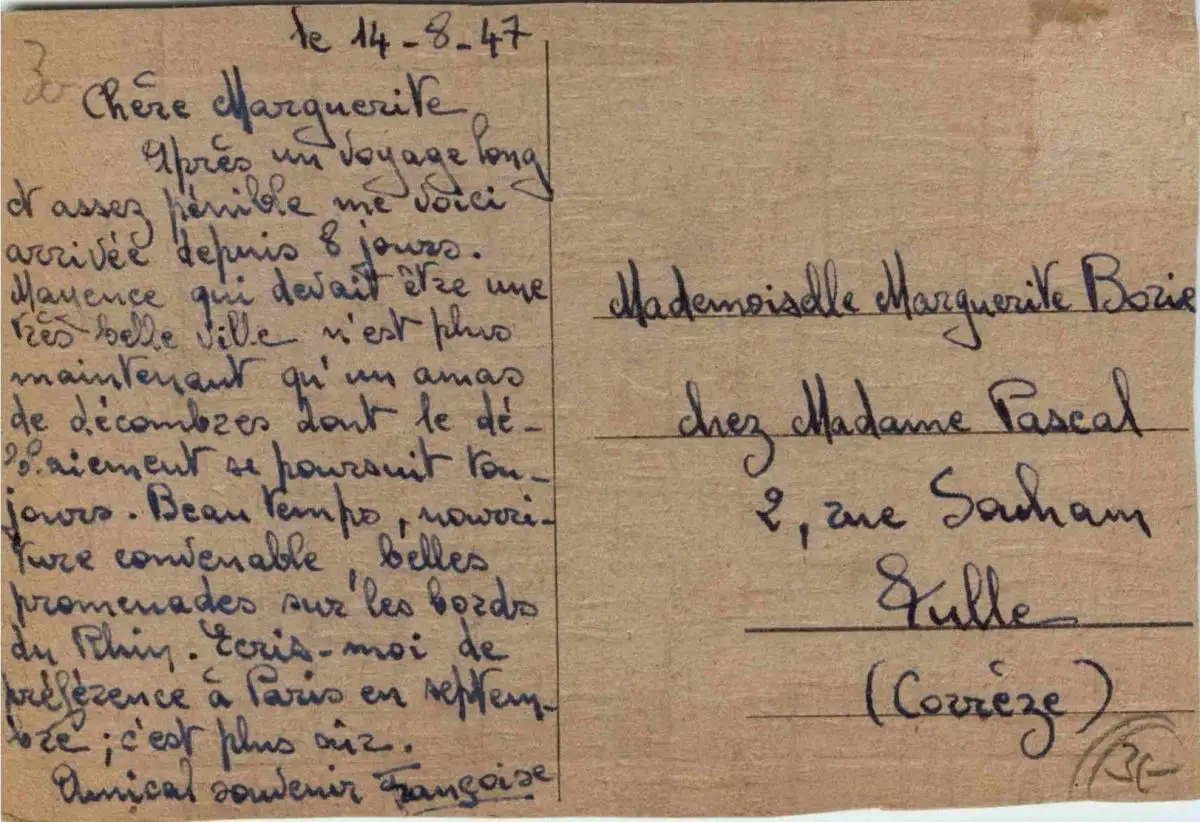 le 14-8-47
Chère Marguerite
Après un voyage long
et assez pénible me voici
arrivée depuis 8 jours.
Mayence qui devait être une
très belle ville n'est plus
maintenant qu'un amas
de décombres dont le dé-
blaiement se poursuit tou-
jours. Beau temps, nourri-
ture convenable, belles
promenades sur les bords
du Rhin. Ecris-moi de
préférence à Paris en septem-
bre; c'est plus sûr.
Amical souvenir Françoise
Mademoiselle Marguerite Borie
chez Madame Pascal
2, rue Souham
Tulle
(Corrèze)
3-